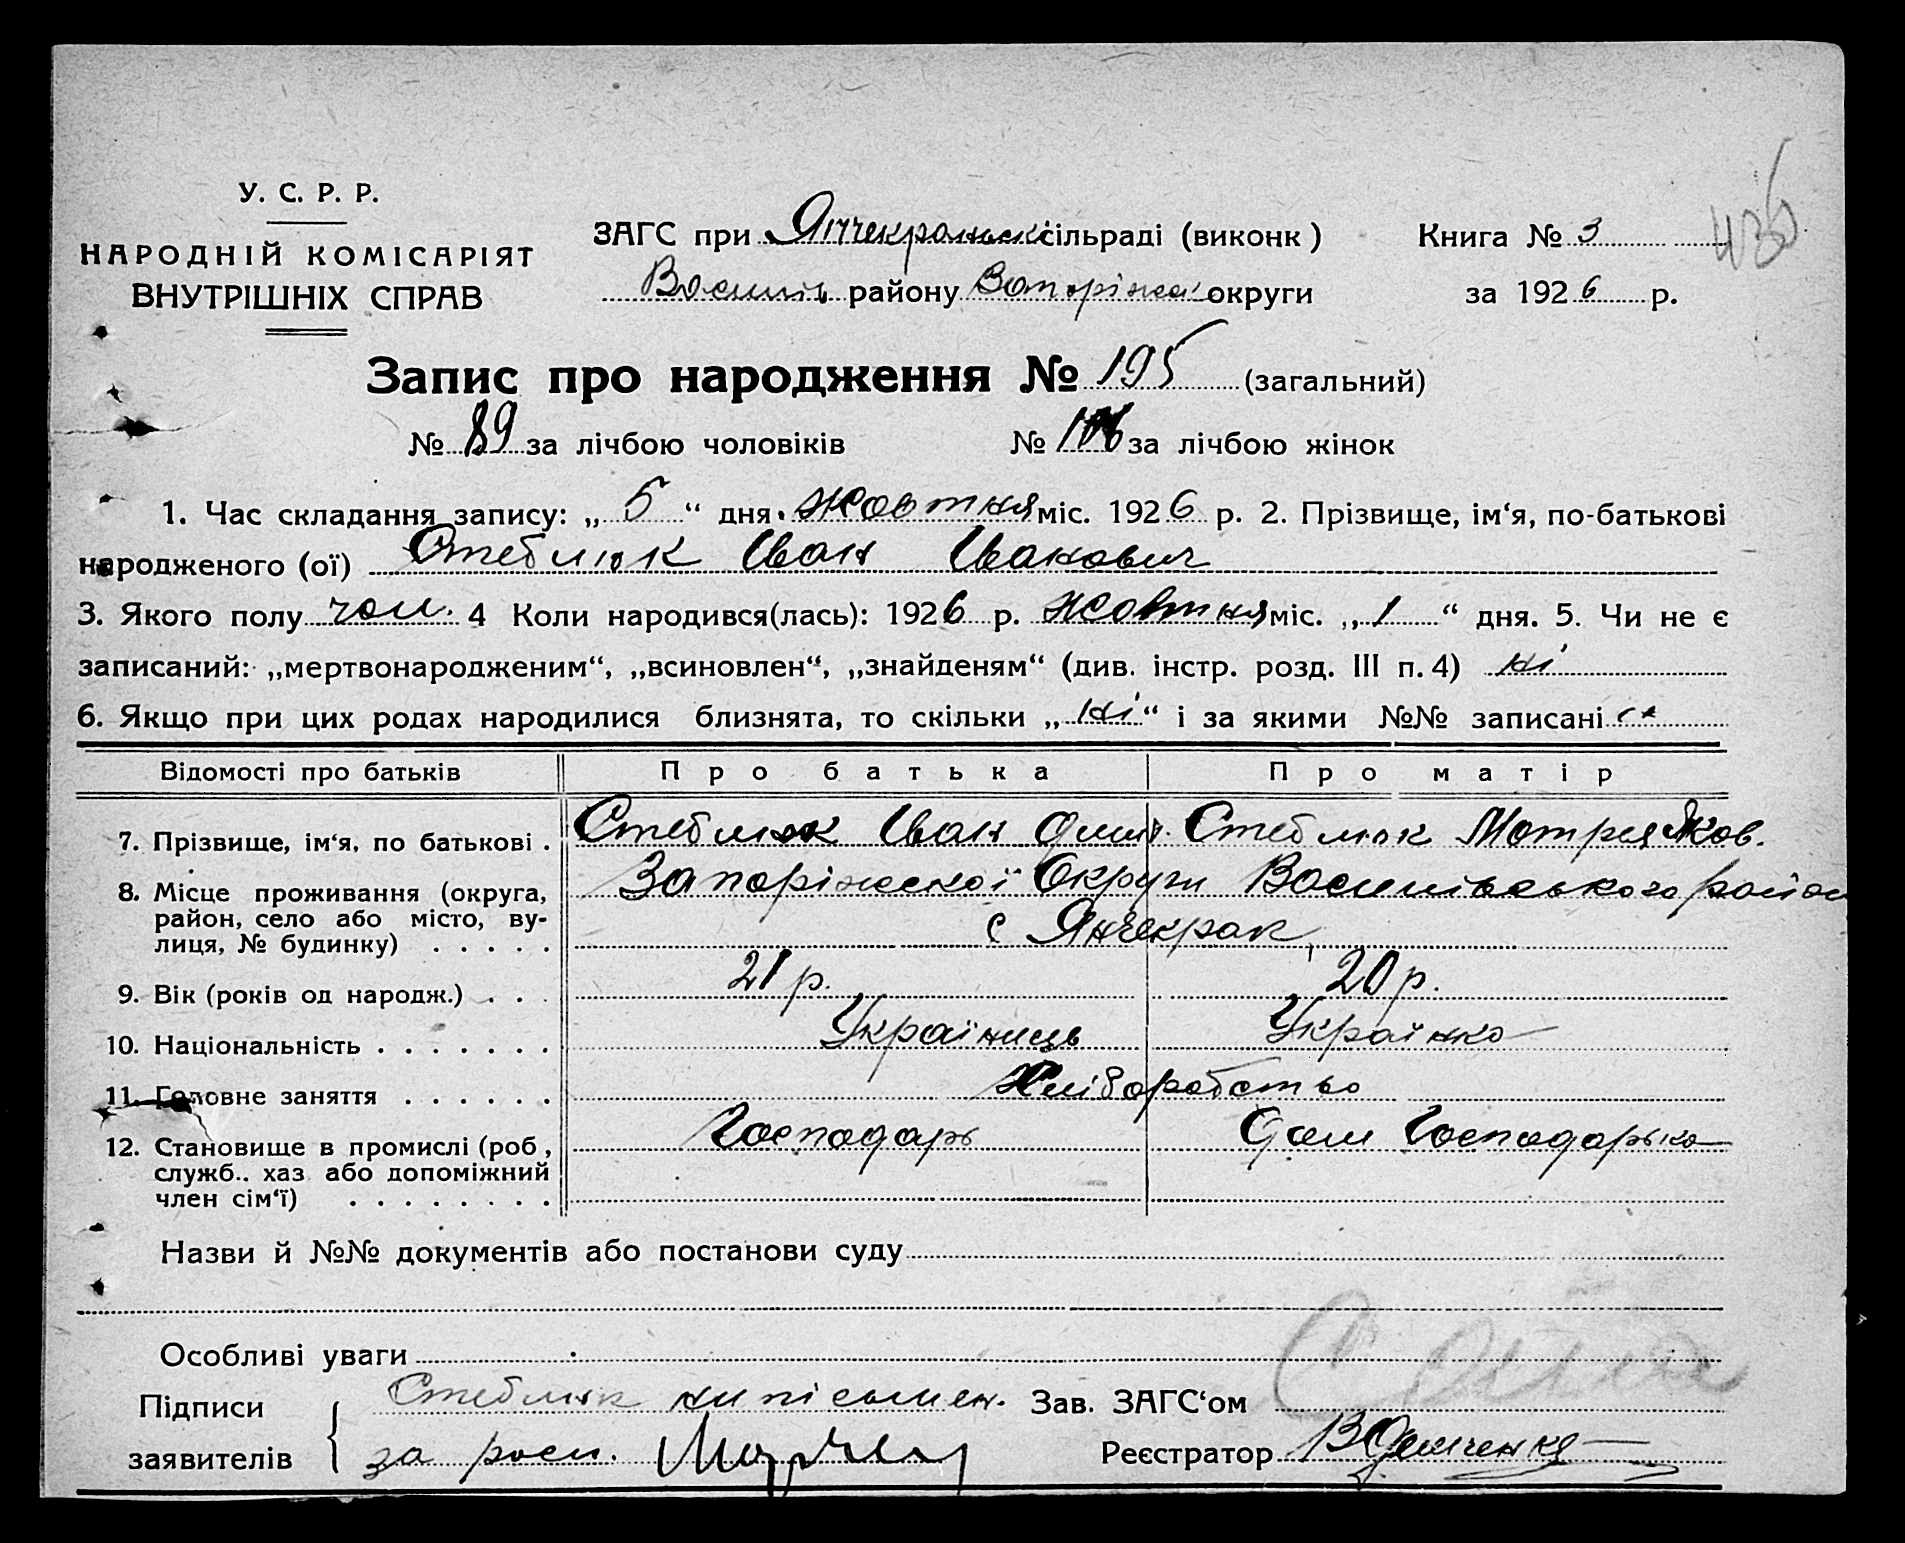 У. С. Р. Р.
НАРОДНІЙ КОМІСАРІЯТ
ВНУТРІШНІХ СПРАВ
ЗАГС при Янчекраньск сільраді (виконк)
Василів району Запоріжськ округи
Книга № 3
за 1926 р.
436
Запис про народження № 195 (загальний)
№ 89 за лічбою чоловіків № 106 за лічбою жінок
1. Час складання запису: „ 5 “ дня Жовтня міс. 1926 р. 2. Прізвище, ім‘я, по-батькові
народженого (ої) Стеблюк Іван Іванович
3. Якого полу чол. 4 Коли народився(лась): 1926 р. Жовтня міс. „ 1 “ дня. 5. Чи не є
записаний: „мертвонародженим“, „всиновлен“, „знайденям“ (див. інстр. розд. III п. 4) ні
6. Якщо при цих родах народилися близнята, то скільки „ ні “ і за якими №№ записані
Відомості про батьків Про батька Про матір
7. Прізвище, ім‘я, по батькові . Стеблюк Іван Дмит. Стеблюк Мотря Яков.
8. Місце проживання (округа, Запоріжської Округи Василівського район
район, село або місто, ву- с Янчекрак
лиця, № будинку) . . . . .
9. Вік (років од народж.) . . . 21 р. 20 р.
10. Національність . . . . . . . Українець Українка
11. Головне заняття . . . . . . Хліборобство
12. Становище в промислі (роб, Господарь Дом Господарька
служб.. хаз або допоміжний
член сім‘ї) . . . . . . . .
Назви й №№ документів або постанови суду
Особливі уваги
Підписи Стеблюк нипісьмен. Зав. ЗАГС‘ом
заявителів за росп. Реєстратор В Демченко